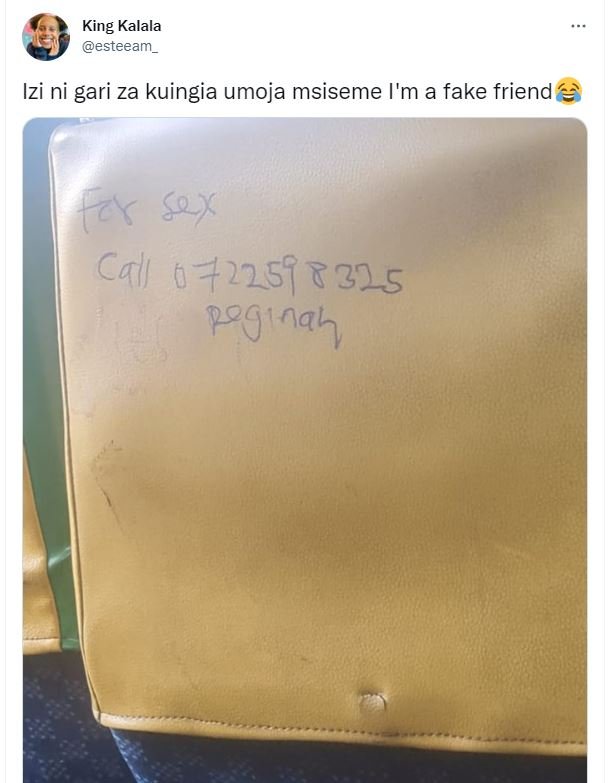 King Kalala
@esteeam_
Izi ni gari za kuingia umoja msiseme I'm a fake friend😂
For sex
Call 0722598325
Reginah